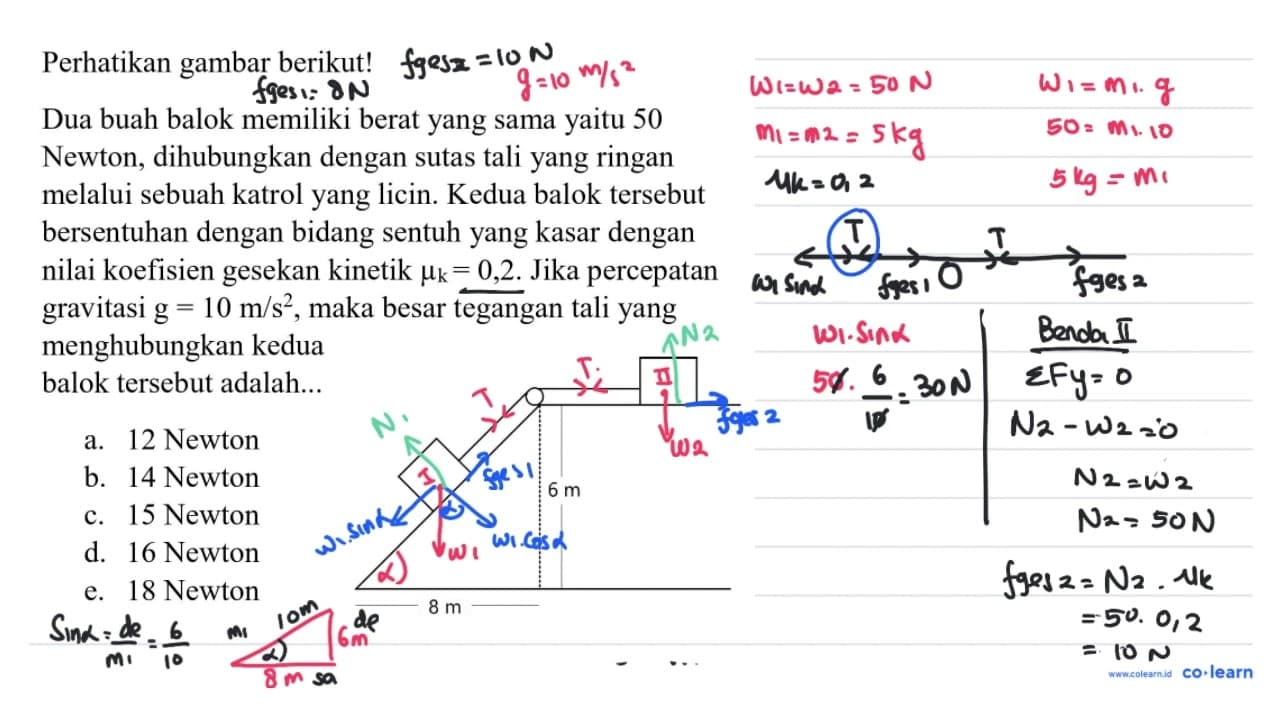 Perhatikan gambar berikut! fges2 = 10 N
fges1 = 8N g = 10 m/s²
Dua buah balok memiliki berat yang sama yaitu 50
Newton, dihubungkan dengan sutas tali yang ringan
melalui sebuah katrol yang licin. Kedua balok tersebut
bersentuhan dengan bidang sentuh yang kasar dengan
nilai koefisien gesekan kinetik μk = 0,2. Jika percepatan
gravitasi g = 10 m/s², maka besar tegangan tali yang
menghubungkan kedua
balok tersebut adalah...
a. 12 Newton
b. 14 Newton
c. 15 Newton
d. 16 Newton
e. 18 Newton
Sinα = de/mi = 6/10
mi 10m de
α) 6m
8 m sa
N1 T T N2
I II
fges1 fges 2
W1.Sinα W1 W1.Cosα W2
α α)
6 m
8 m
W1=W2 = 50 N
m1 = m2 = 5 kg
μk = 0,2
W1 = m1. g
50 = m1. 10
5 kg = m1
T T
W1 Sinα fges1 fges 2
W1.Sinα
50. 6/10 = 30N
Benda II
ΣFy = 0
N2 - W2 = 0
N2 = W2
N2 = 50N
fges 2 = N2 . μk
= 50. 0,2
= 10 N
www.colearn.id co·learn